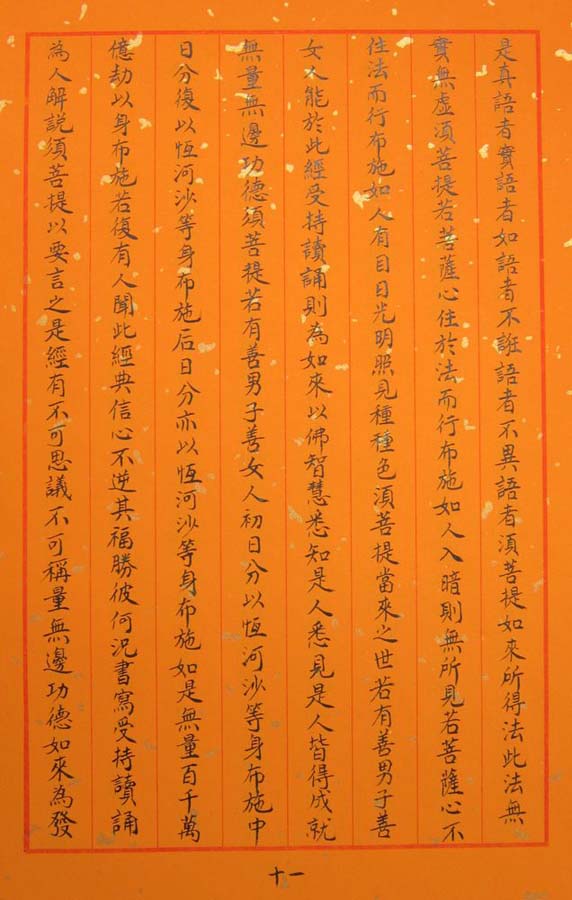 是真語者實語者如語者不誑語者不異語者須菩提如來所得法此法無
實無虛須菩提若菩薩心住於法而行布施如人入暗則無所見若菩薩心不
住法而行布施如人有目日光明照見種種色須菩提當來之世若有善男子善
女人能於此經受持讀誦則為如來以佛智慧悉知是人悉見是人皆得成就
無量無邊功德須菩提若有善男子善女人初日分以恆河沙等身布施中
日分復以恆河沙等身布施后日分亦以恆河沙等身布施如是無量百千萬
億劫以身布施若復有人聞此經典信心不逆其福勝彼何況書寫受持讀誦
為人解說須菩提以要言之是經有不可思議不可稱量無邊功德如來為發
十一